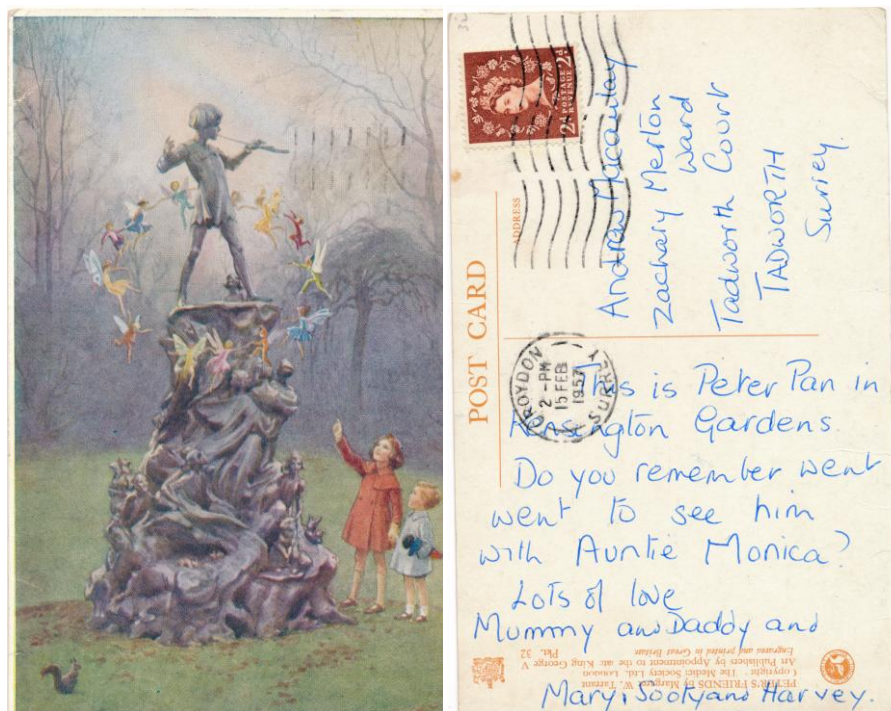 2d
POSTAGE
REVENUE
2d
POST CARD
ADDRESS
Andrew Macaulay
Zachary Merton
Ward
Tadworth Court
TADWORTH
Surrey.
CROYDON
2 - PM
15 FEB
1957
SURREY
This is Peter Pan in
Kensington Gardens.
Do you remember went
went to see him
with Auntie Monica?
Lots of love
Mummy and Daddy and
Mary, Sooty and Harvey.
PETER'S FRIENDS by Margaret W. Tarrant
Copyright · The Medici Society Ltd. London
Art Publishers by Appointment to the late King George V
Engraved and printed in Great Britain
Pkt. 32
32